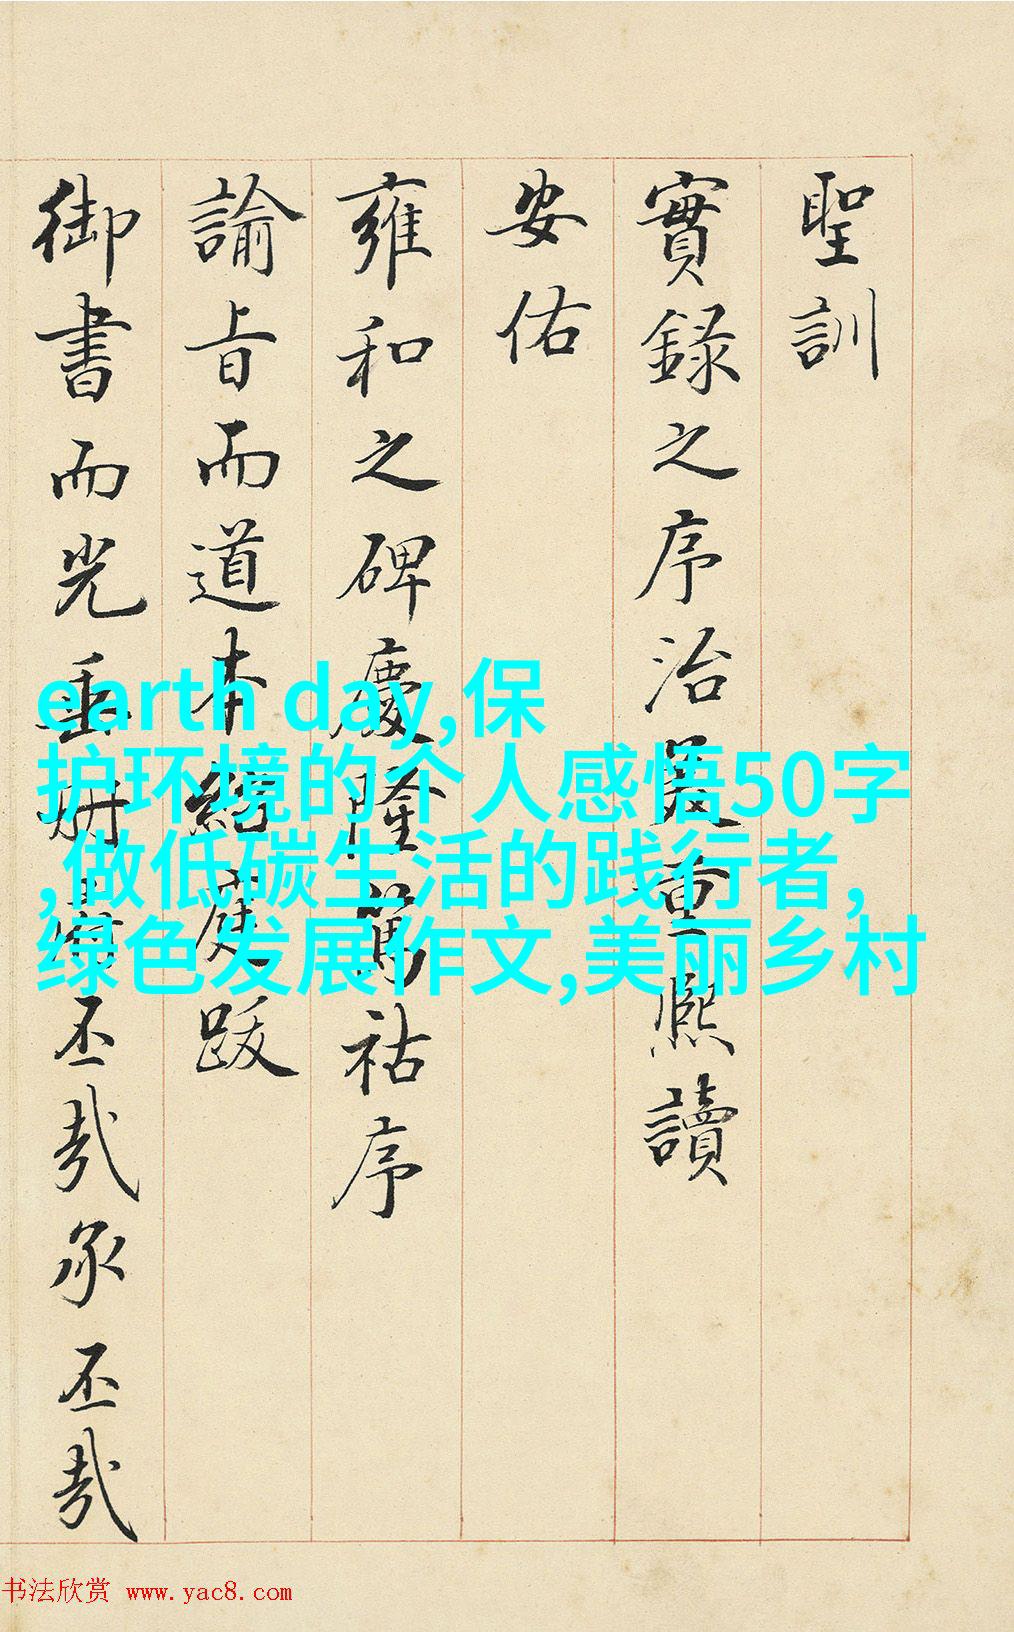 聖訓
實錄之序治晟重熈讀
安佑
雍和之碑慶隆篤祜序
諭旨而道本經庭跋
御書而光垂册府丕哉承丕哉
earth day,保
护环境的个人感悟50字
,做低碳生活的践行者,
绿色发展作文,美丽乡村
书法欣赏 www.yac8.com